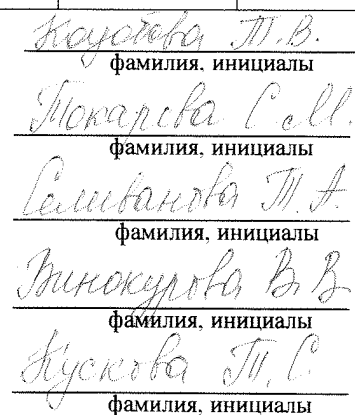 Т.В.
фамилия, инициалы
Токарева С.М.
фамилия, инициалы
Селиванова Т.А.
фамилия, инициалы
Винокурова В.В.
фамилия, инициалы
Кускова Т.С.
фамилия, инициалы